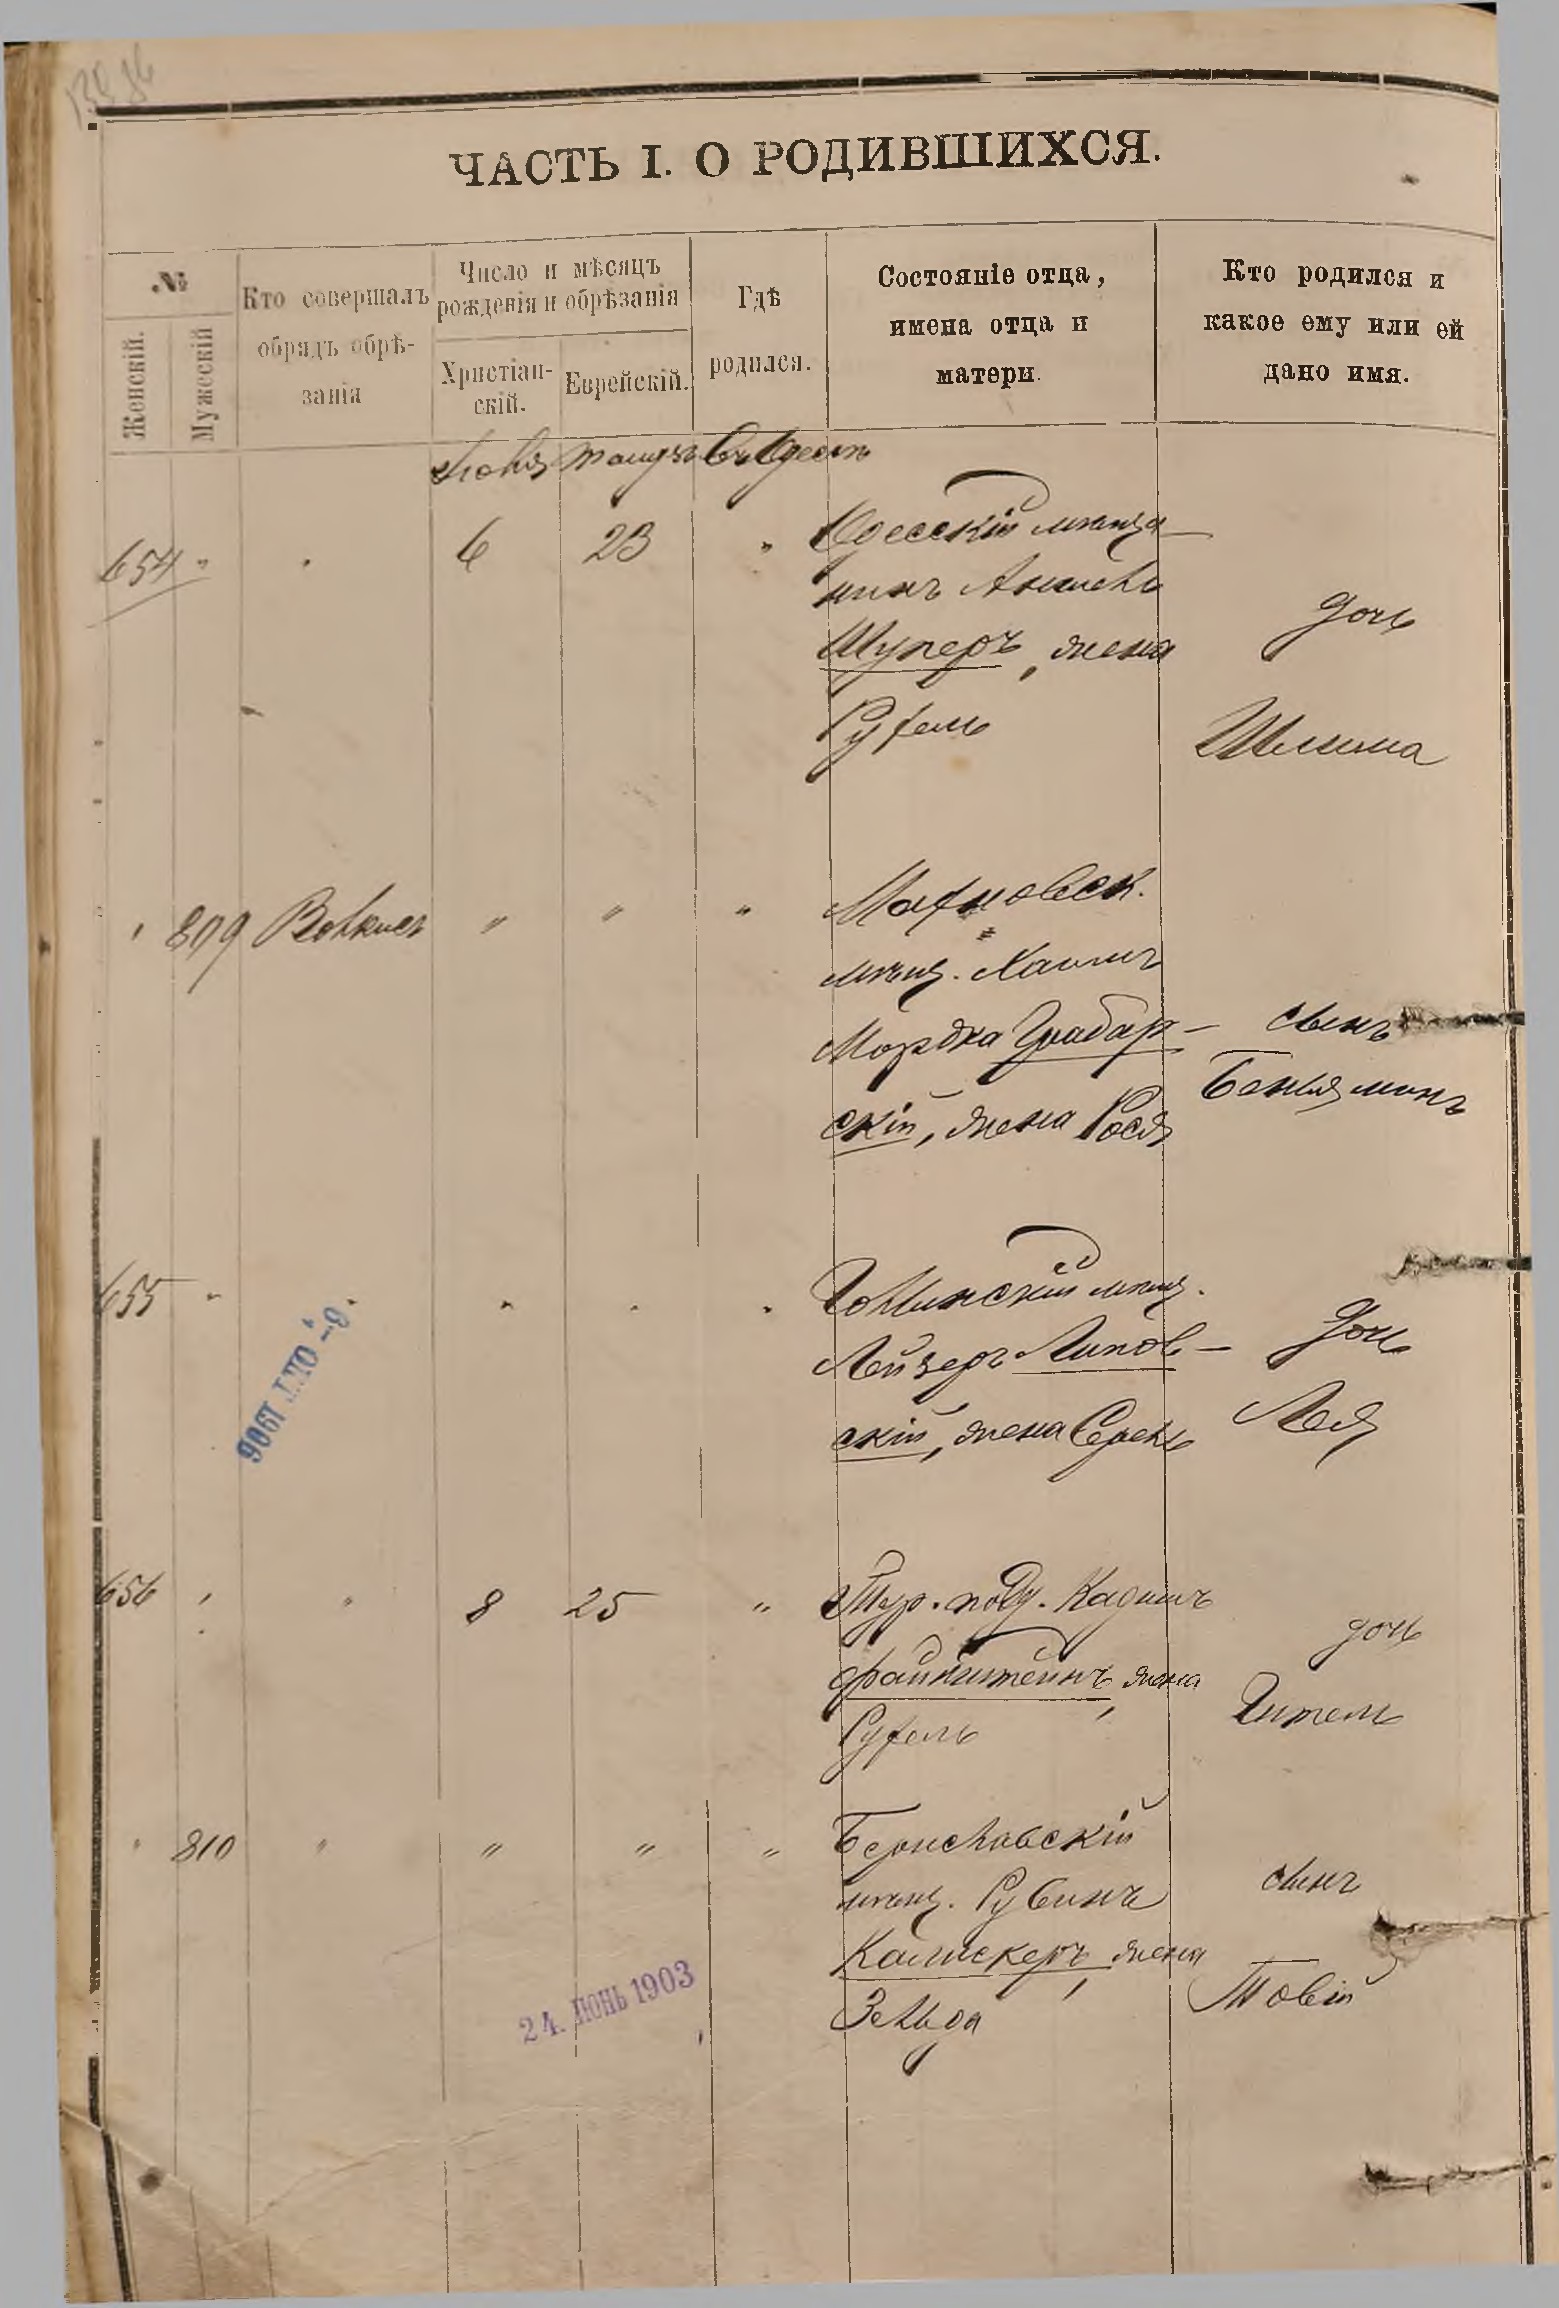 ЧАСТЬ I. О РОДИВШИХСЯ.
№
Женскій.
Мужескій
Кто совершалъ
обрядъ обрѣ-
занія
Число и мѣсяцъ
рожденія и обрѣзанія
Христіан-
скій.
Еврейскій.
Гдѣ
родился.
Состояніе отца,
имена отца и
матери.
Кто родился и
какое ему или ей
дано имя.
Іюля тамузъ Въ Одессѣ
654 " " 6 23 " Одесскій мѣща-
нинъ Аншель
Шуперъ, жена
Рухель
дочь
Шлима
" 809 Волкисъ " " " Махновск.
мѣщ. Хаимъ
Мордка Грабар-
скій, жена Рося
сынъ
Беньяминъ
655 " " " " " мѣщ.
Лейзеръ Липов-
скій, жена
дочь
Лея
9-ОКТ 1906
656 " " 8 25 " Тур. подд. Кадишъ
Файнштейнъ, жена
Рухель
дочь
Гитель
" 810 " " " " Бериславскій
мѣщ. Рувинъ
Калискеръ, жена
Зельда
сынъ
Товій
24. ІЮНЬ 1903